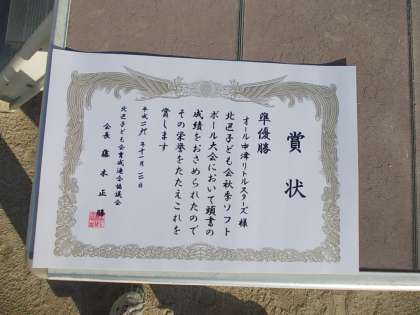 賞状
準優勝
オール中津リトルスターズ様
北区子ども会秋季ソフト
ボール大会において頭書の
成績をおさめられたので
その栄誉をたたえこれを
賞します
平成二六年十一月二日
北区子ども会育成連合協議会
会長 藤本正勝